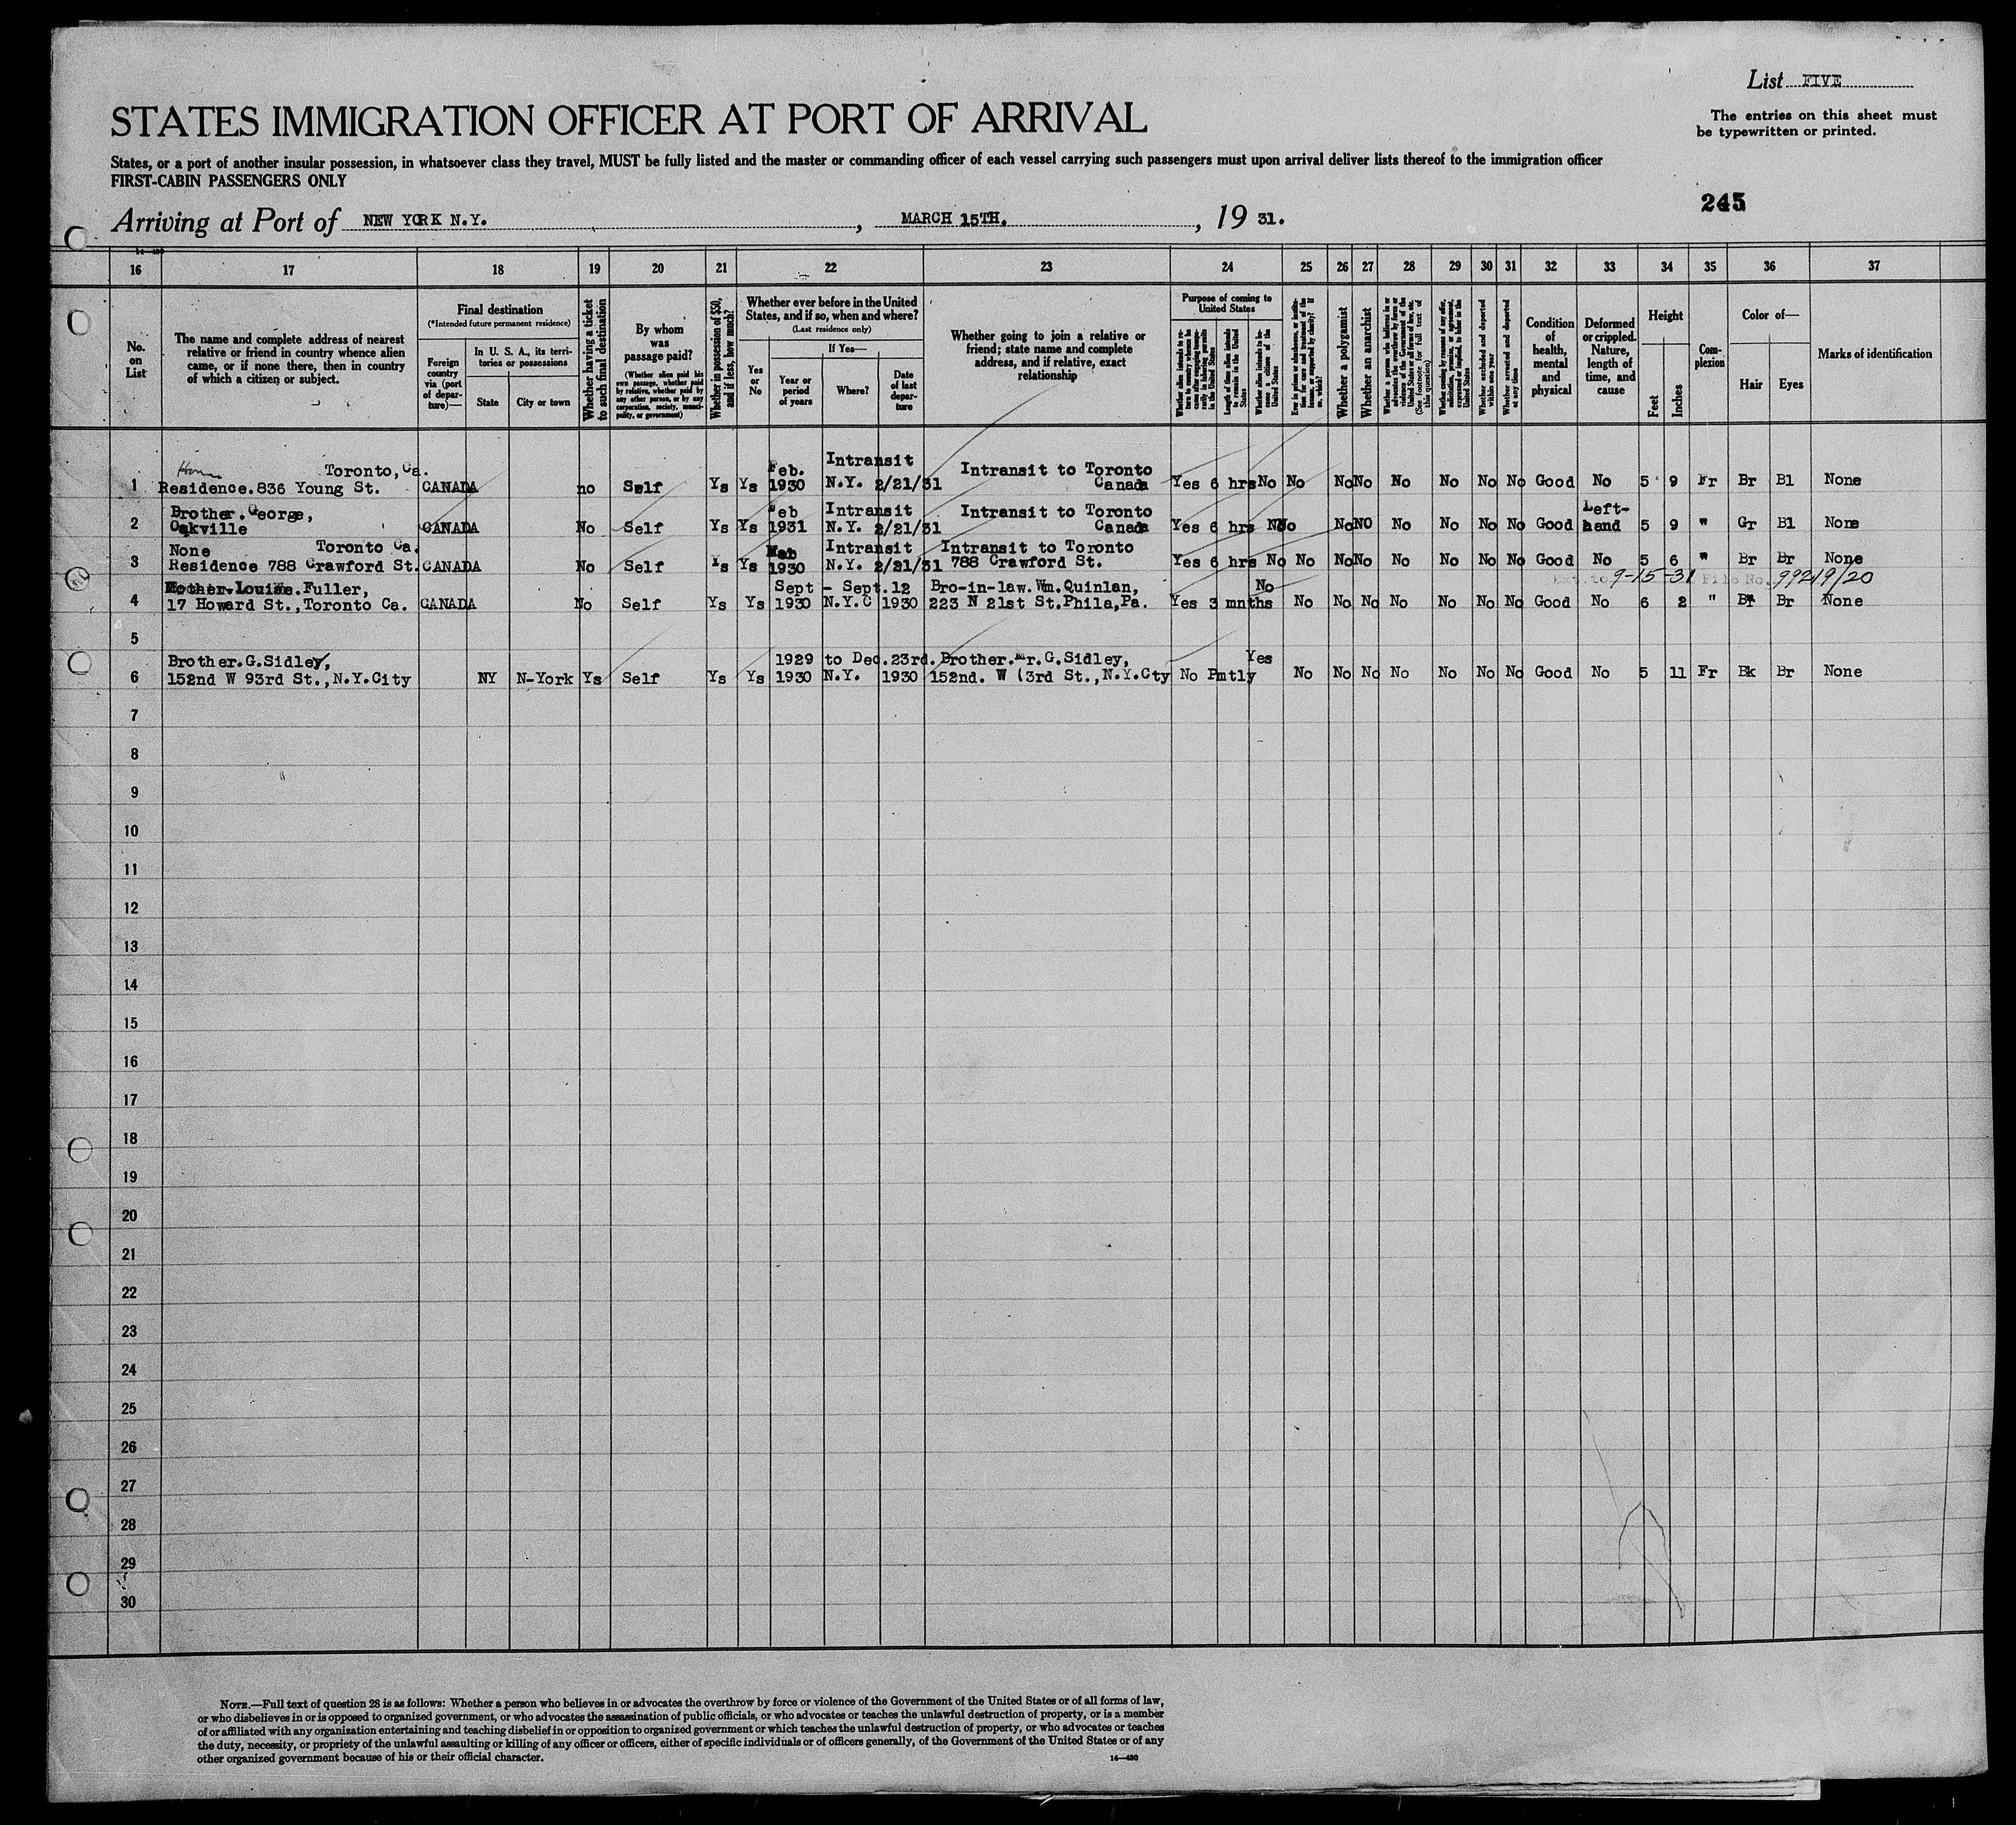 List FIVE
STATES IMMIGRATION OFFICER AT PORT OF ARRIVAL
The entries on this sheet must
be typewritten or printed.
States, or a port of another insular possession, in whatsoever class they travel, MUST be fully listed and the master or commanding officer of each vessel carrying such passengers must upon arrival deliver lists thereof to the immigration officer
FIRST-CABIN PASSENGERS ONLY
245
Arriving at Port of NEW YORK N.Y. , MARCH 15TH. , 19 31.
16 17 18 19 20 21 22 23 24 25 26 27 28 29 30 31 32 33 34 35 36 37
No. on List
The name and complete address of nearest
relative or friend in country whence alien
came, or if none there, then in country
of which a citizen or subject.
Final destination
(*Intended future permanent residence)
Foreign country via (port of departure)—
In U. S. A., its territories or possessions
State
City or town
Whether having a ticket to such final destination
By whom was passage paid?
(Whether alien paid his own passage, whether paid by relative, whether paid by any other person, or by any corporation, society, municipality, or government)
Whether in possession of $50, and if less, how much?
Whether ever before in the United
States, and if so, when and where?
(Last residence only)
Yes or No
If Yes—
Year or period of years
Where?
Date of last departure
Whether going to join a relative or
friend; state name and complete
address, and if relative, exact
relationship
Purpose of coming to
United States
Length of time alien intends to remain in the United States
Whether alien intends to become a citizen of the United States
Whether a polygamist
Whether an anarchist
(See footnote for full text of this question)
Whether excluded and deported within one year
Whether arrested and deported at any time
Condition of health, mental and physical
Deformed or crippled. Nature, length of time, and cause
Height
Feet
Inches
Complexion
Color of—
Hair
Eyes
Marks of identification
Toronto, Ca. Feb. Intransit Intransit to Toronto
1 Residence.836 Young St. CANADA no Self Ys Ys 1930 N.Y. 2/21/31 Canada Yes 6 hrs No No No No No No No No Good No 5 9 Fr Br Bl None
Brother.George, Feb Intransit Intransit to Toronto Left-
2 Oakville CANADA No Self Ys Ys 1931 N.Y. 2/21/31 Canada Yes 6 hrs No No No NO No No No No Good hand 5 9 " Gr Bl None
None Toronto Ca. Intransit Intransit to Toronto
3 Residence 788 Crawford St. CANADA No Self Ys Ys 1930 N.Y. 2/21/31 788 Crawford St. Yes 6 hrs No No No No No No No No Good No 5 6 " Br Br None
Ext. to 9-15-31 File No. 99219/20
Mother.Louise.Fuller, Sept - Sept.12 Bro-in-law.Wm.Quinlan, No
4 17 Howard St.,Toronto Ca. CANADA No Self Ys Ys 1930 N.Y.C 1930 223 N 21st St.Phila,Pa. Yes 3 mnths No No No No No No No Good No 6 2 " Br Br None
5
Brother.G.Sidley, 1929 to Dec.23rd. Brother.Mr.G.Sidley, Yes
6 152nd W 93rd St.,N.Y.City NY N-York Ys Self Ys Ys 1930 N.Y. 1930 152nd. W (3rd St.,N.Y.Cty No Pmtly No No No No No No No Good No 5 11 Fr Bk Br None
7
8
9
10
11
12
13
14
15
16
17
18
19
20
21
22
23
24
25
26
27
28
29
30
NOTE.—Full text of question 28 is as follows: Whether a person who believes in or advocates the overthrow by force or violence of the Government of the United States or of all forms of law,
or who disbelieves in or is opposed to organized government, or who advocates the assassination of public officials, or who advocates or teaches the unlawful destruction of property, or is a member
of or affiliated with any organization entertaining and teaching disbelief in or opposition to organized government or which teaches the unlawful destruction of property, or who advocates or teaches
the duty, necessity, or propriety of the unlawful assaulting or killing of any officer or officers, either of specific individuals or of officers generally, of the Government of the United States or of any
other organized government because of his or their official character.
14—430